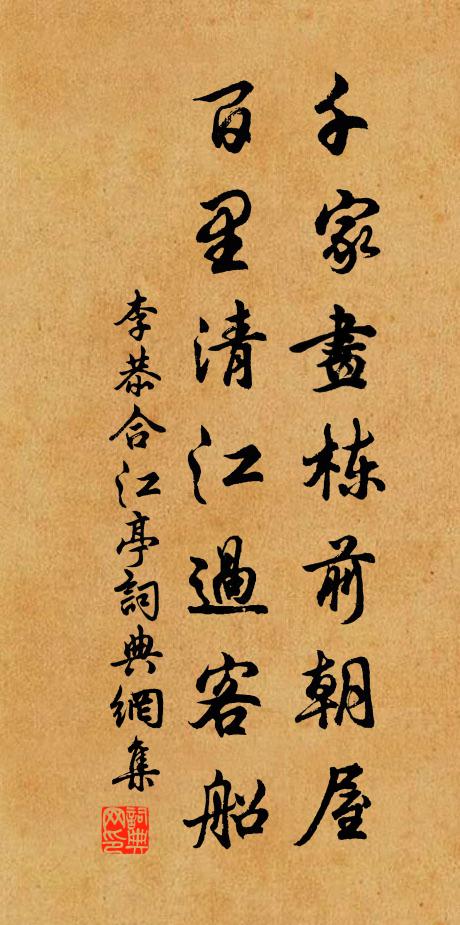 千家畫栋前朝屋
百里清江過客船
李恭合江亭詞典網集
詞典
网印